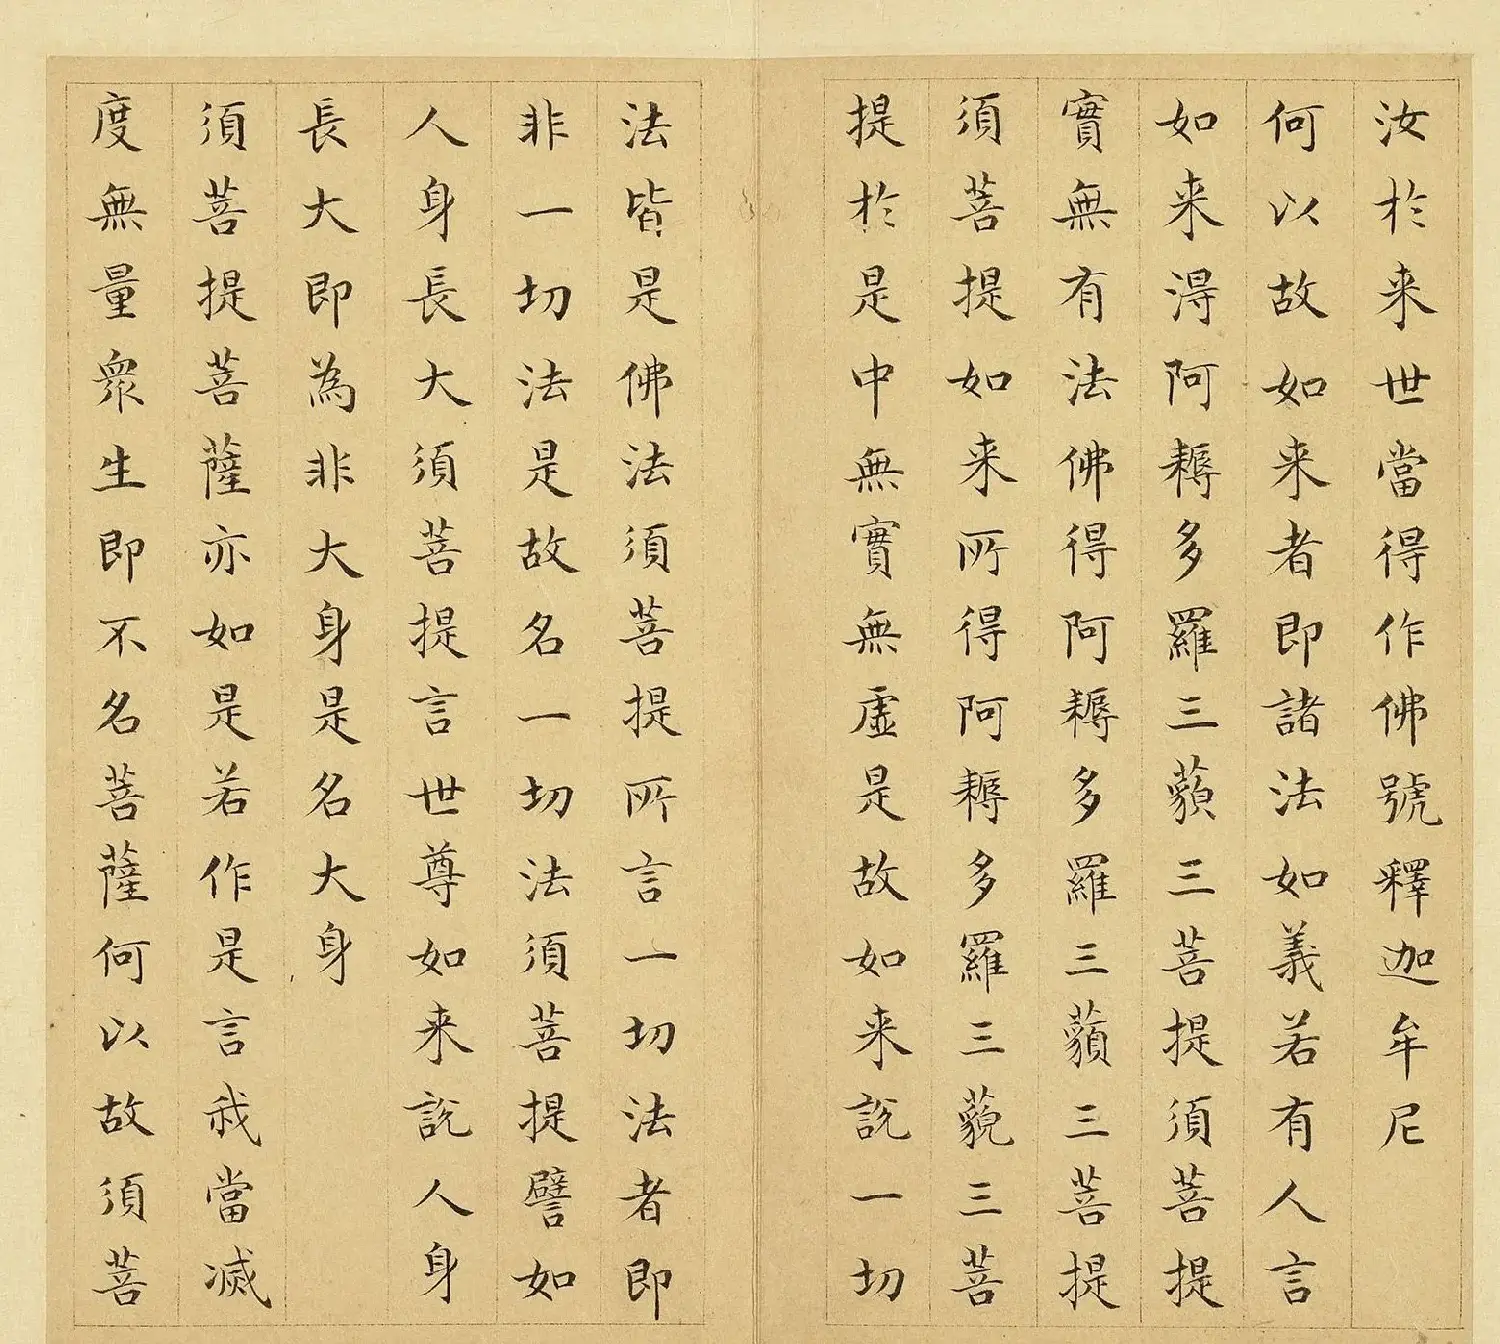 汝於来世當得作佛號釋迦牟尼
何以故如来者即諸法如義若有人言
如来淂阿耨多羅三藐三菩提須菩提
實無有法佛得阿耨多羅三藐三菩提
須菩提如来所得阿耨多羅三藐三菩
提於是中無實無虛是故如来說一切
法皆是佛法須菩提所言一切法者即
非一切法是故名一切法須菩提譬如
人身長大須菩提言世尊如来說人身
長大即為非大身是名大身
須菩提菩薩亦如是若作是言我當滅
度無量眾生即不名菩薩何以故須菩